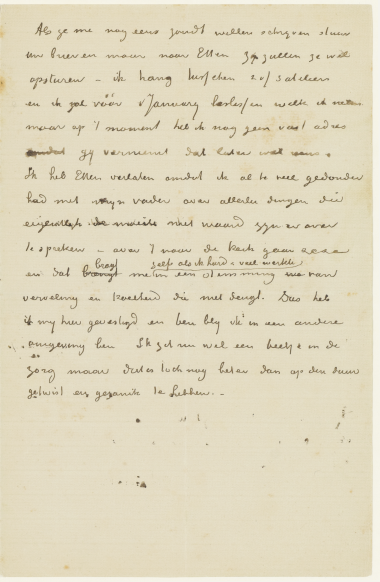 Als ge me nog eens zoudt willen schryven stuur
uw brieven maar naar Etten zy zullen ze wel
opsturen – ik hang tusschen 2 of 3 ateliers
en ik zal vóór 1 January beslissen welk ik neem
maar op 't moment heb ik nog geen vast adres
gy verneemt dat later wel eens.
Ik heb Etten verlaten omdat ik al te veel gedonder
had met myn vader over allerlei dingen die
eigentlyk de moeite niet waard zyn er over
te spreken – over 't naar de kerk gaan
bragt zelfs als ik hard & veel werkte
en dat bragt me in een stemming van
verveling en kwelerd die niet deugt. Dus heb
ik my hier gevestigd en ben bly ik in een andere
omgeving ben Ik zit nu wel een beetje in de
zorg maar dat is toch nog beter dan op den duur
getwist en gezanik te hebben. –